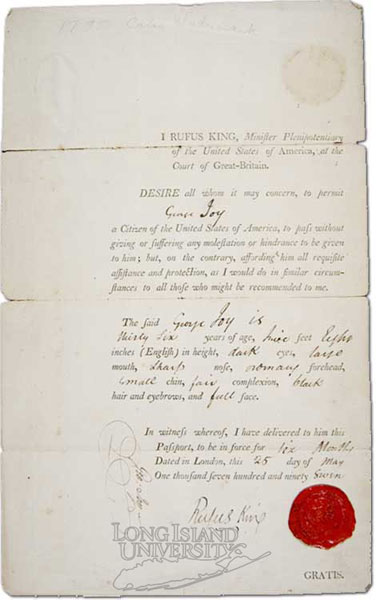 1795
I RUFUS KING, Minister Plenipotentiary
of the United States of America, at the
Court of Great-Britain.
DESIRE all whom it may concern, to permit
George Joy
a Citizen of the United States of America, to pass without
giving or suffering any molestation or hindrance to be given
to him; but, on the contrary, affording him all requisite
assistance and protection, as I would do in similar circum-
stances to all those who might be recommended to me.
The said George Joy is
thirty Six years of age, five feet Eight
inches (English) in height, dark eyes, large
mouth, sharp nose, romany forehead,
small chin, fair complexion, black
hair and eyebrows, and full face.
In witness whereof, I have delivered to him this
Passport, to be in force for six Months
Dated in London, this 25 day of May
One thousand seven hundred and ninety Seven
Rufus King
LONG ISLAND
UNIVERSITY
GRATIS.